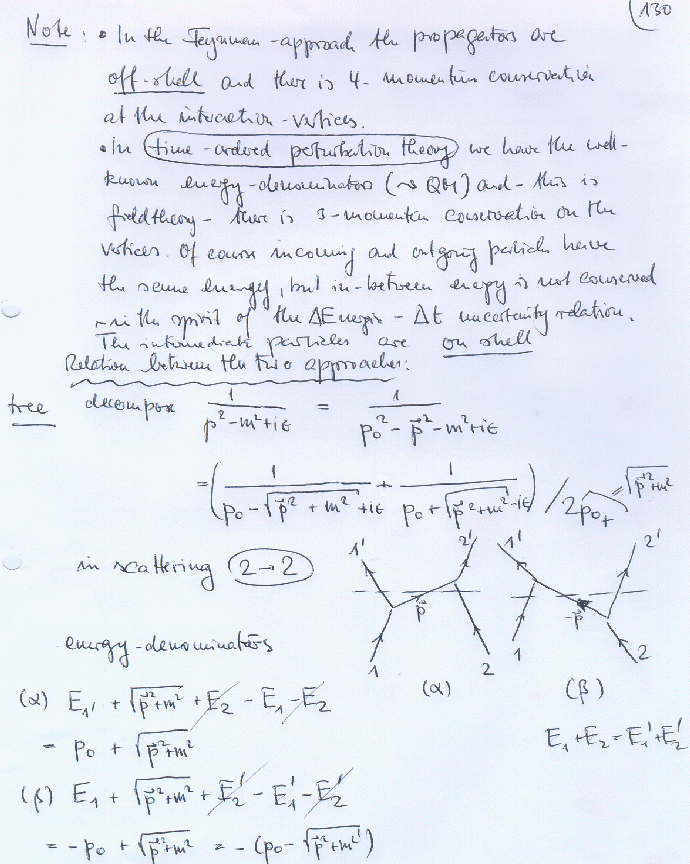 130
Note: • In the Feynman-approach the propagators are
off-shell and ther is 4-momentum conservation
at the interaction-vertices.
• In time-ordered perturbation theory we have the well-
known energy-denominators (~> QM) and - this is
fieldtheory - ther is 3-momentum conservation on the
vertices. Of course incoming and outgoing particles have
the same energy, but in-between energy is not conserved
- in the spirit of the ΔEnergie - Δt uncertainty relation.
The intermediate particles are on shell
Relation between the two approaches:
tree decompose 1/(p² - m² + iϵ) = 1/(p₀² - p⃗² - m² + iϵ)
= (1/(p₀ - √(p⃗² + m²) + iϵ) + 1/(p₀ + √(p⃗² + m²) - iϵ)) / 2p₀₊ = √(p⃗² + m²)
in scattering 2→2
1' 2' 1' 2'
p⃗ -p⃗
1 2 1 2
(α) (β)
energy-denominators
(α) E₁' + √(p⃗² + m²) + E₂ - E₁ - E₂
= p₀ + √(p⃗² + m²)
E₁ + E₂ = E₁' + E₂'
(β) E₁ + √(p⃗² + m²) + E₂' - E₁' - E₂'
= -p₀ + √(p⃗² + m²) = -(p₀ - √(p⃗² + m²))